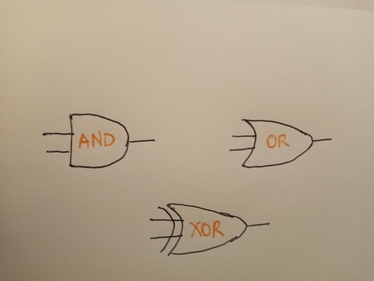 AND
OR
XOR